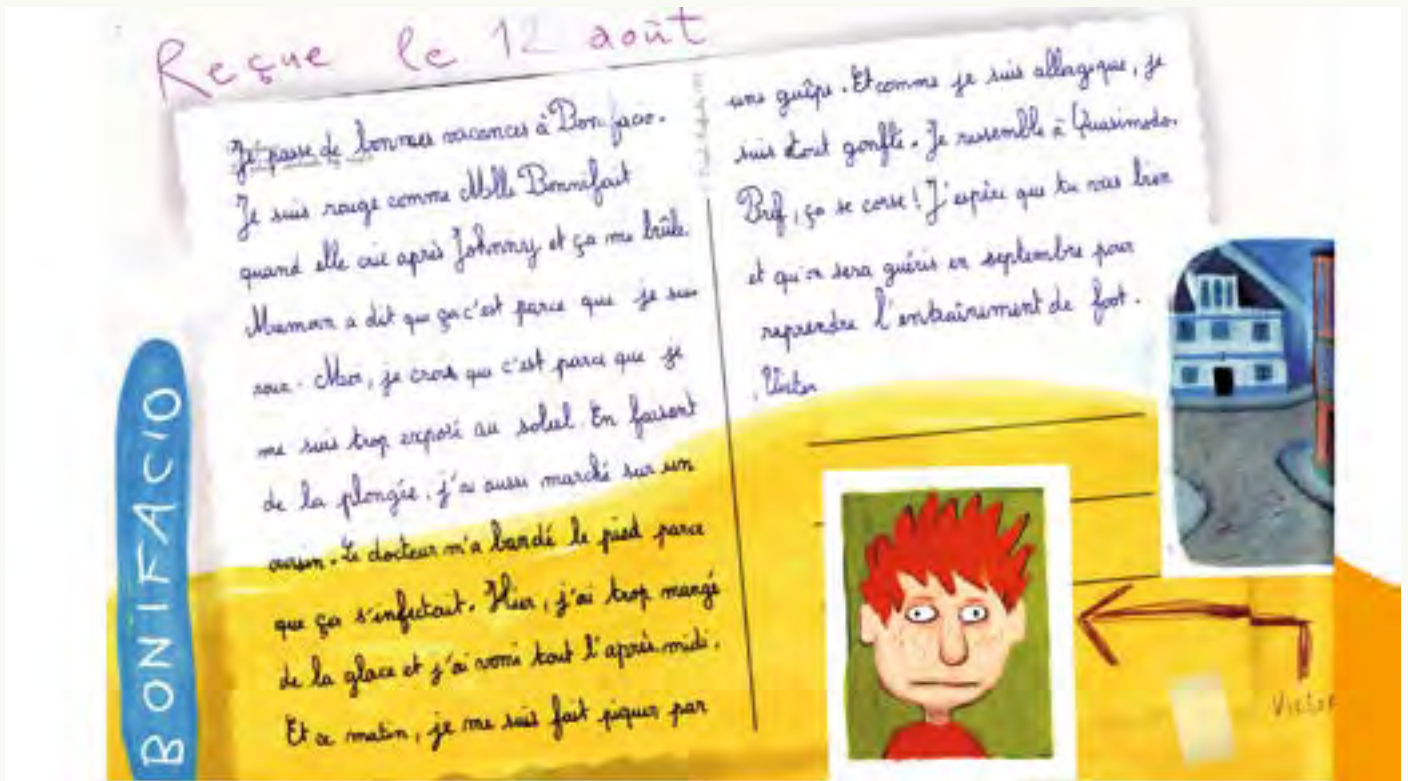 Reçue le 12 août
Je passe de bonnes vacances à Bonifacio.
Je suis rouge comme Mlle Bonnifait
quand elle crie après Johnny et ça me brûle.
Maman a dit que ça c'est parce que je suis
roux. Moi, je crois que c'est parce que je
me suis trop exposé au soleil. En faisant
de la plongée, j'ai aussi marché sur un
oursin. Le docteur m'a bandé le pied parce
que ça s'infectait. Hier, j'ai trop mangé
de la glace et j'ai vomi tout l'après-midi.
Et ce matin, je me suis fait piquer par
une guêpe. Et comme je suis allergique, je
suis tout gonflé. Je ressemble à Quasimodo.
Bref, ça se corse ! J'espère que tu vas bien
et qu'on sera guéris en septembre pour
reprendre l'entraînement de foot.
Victor
BONIFACIO
Victor